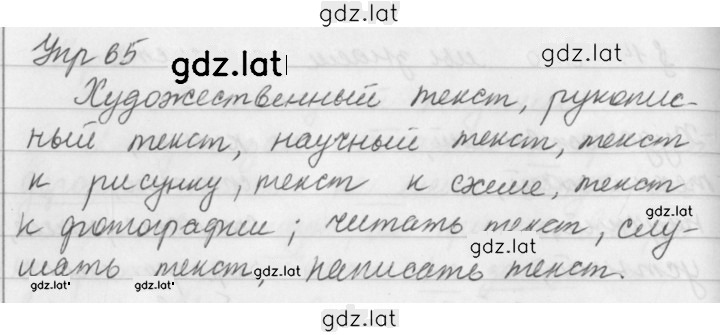 gdz.lat
Упр 65
gdz.lat
Художественный текст, рукопис-
ный текст, научный текст, текст
к рисунку, текст к схеме, текст
gdz.lat
к фотографии; читать текст, слу-
gdz.lat
шать текст, написать текст.
gdz.lat
gdz.lat
gdz.lat